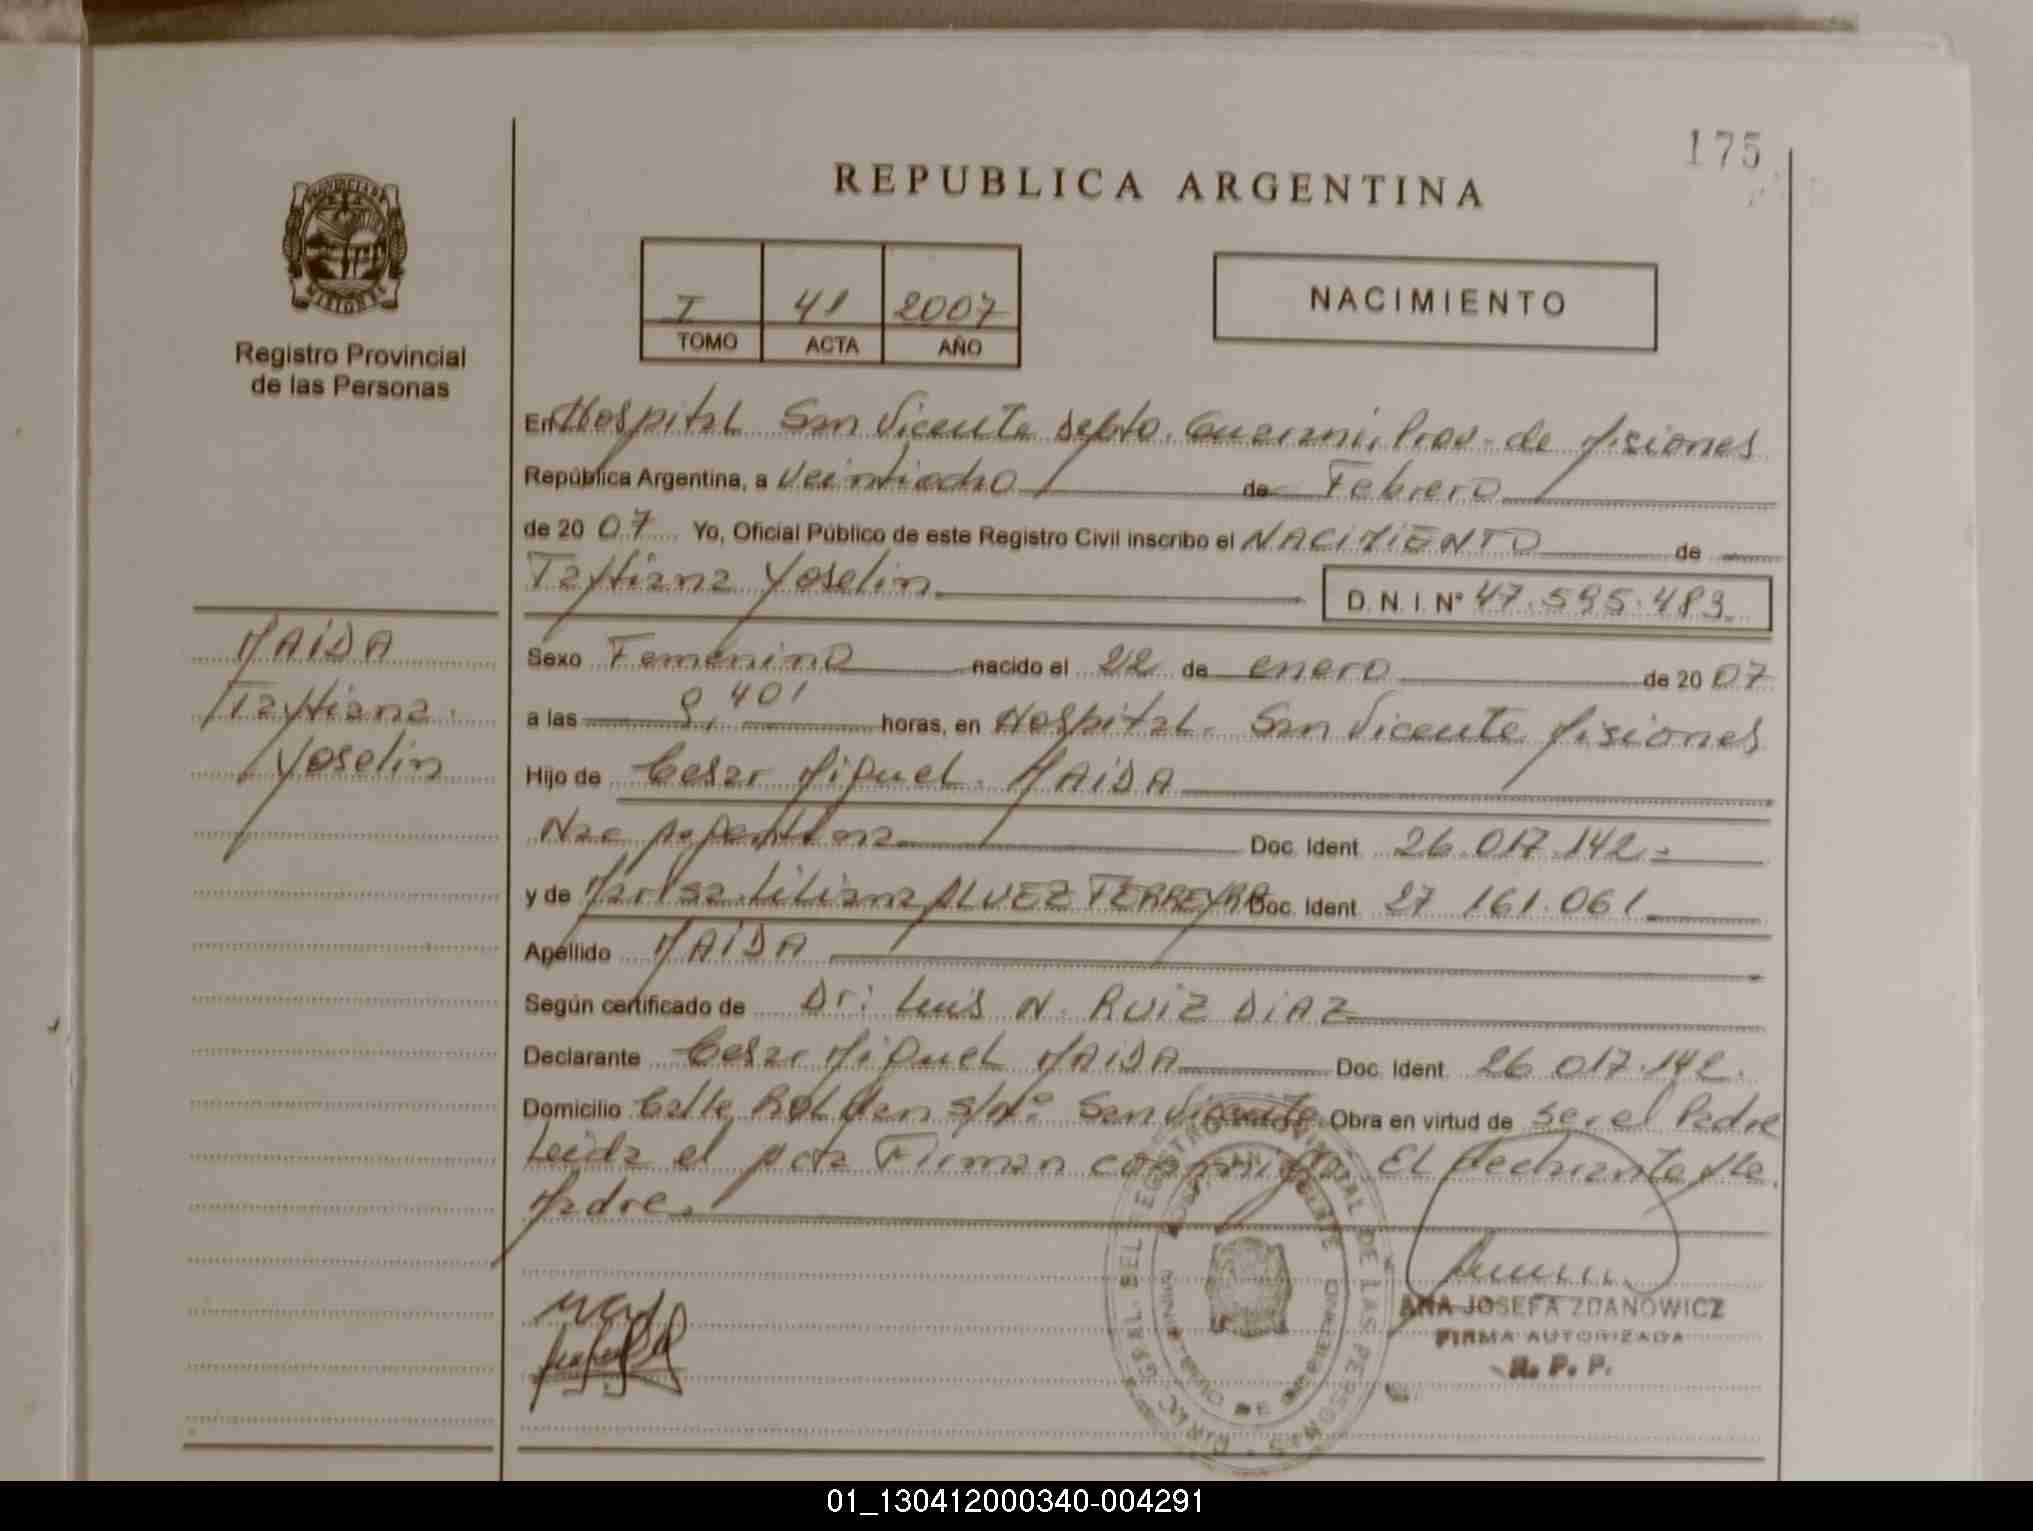 175
REPUBLICA ARGENTINA
PROVINCIA DE
MISIONES
Registro Provincial
de las Personas
I 41 2007
TOMO ACTA AÑO
NACIMIENTO
En Hospital San Vicente Depto. Guarani, Prov. de Misiones
República Argentina, a Veintiocho de Febrero
de 20 07 Yo, Oficial Público de este Registro Civil inscribo el NACIMIENTO de
Taytiana Yoselin D. N. I. Nº 47.595.483
MAIDA
Taytiana
Yoselin
Sexo Femenino nacido el 22 de enero de 20 07
a las horas, en Hospital San Vicente Misiones
Hijo de Cesar Miguel MAIDA
Nac Argentina Doc. Ident. 26.017.142.-
y de Mar Liliana ALVEZ FERREYRA Doc. Ident. 27 161.061
Apellido MAIDA
Según certificado de Dr: Luis N. RUIZ DIAZ
Declarante Cesar Miguel MAIDA Doc. Ident. 26 017.142.
Domicilio Calle Roldan s/nº San Vicente Obra en virtud de ser el Padre
Leida el acta Firman conmigo El declarante y la
Madre.
DIREC. GRAL. DEL REGISTRO PROVINCIAL DE LAS PERSONAS
SAN VICENTE
ANA JOSEFA ZDANOWICZ
FIRMA AUTORIZADA
R. P. P.
01_130412000340-004291